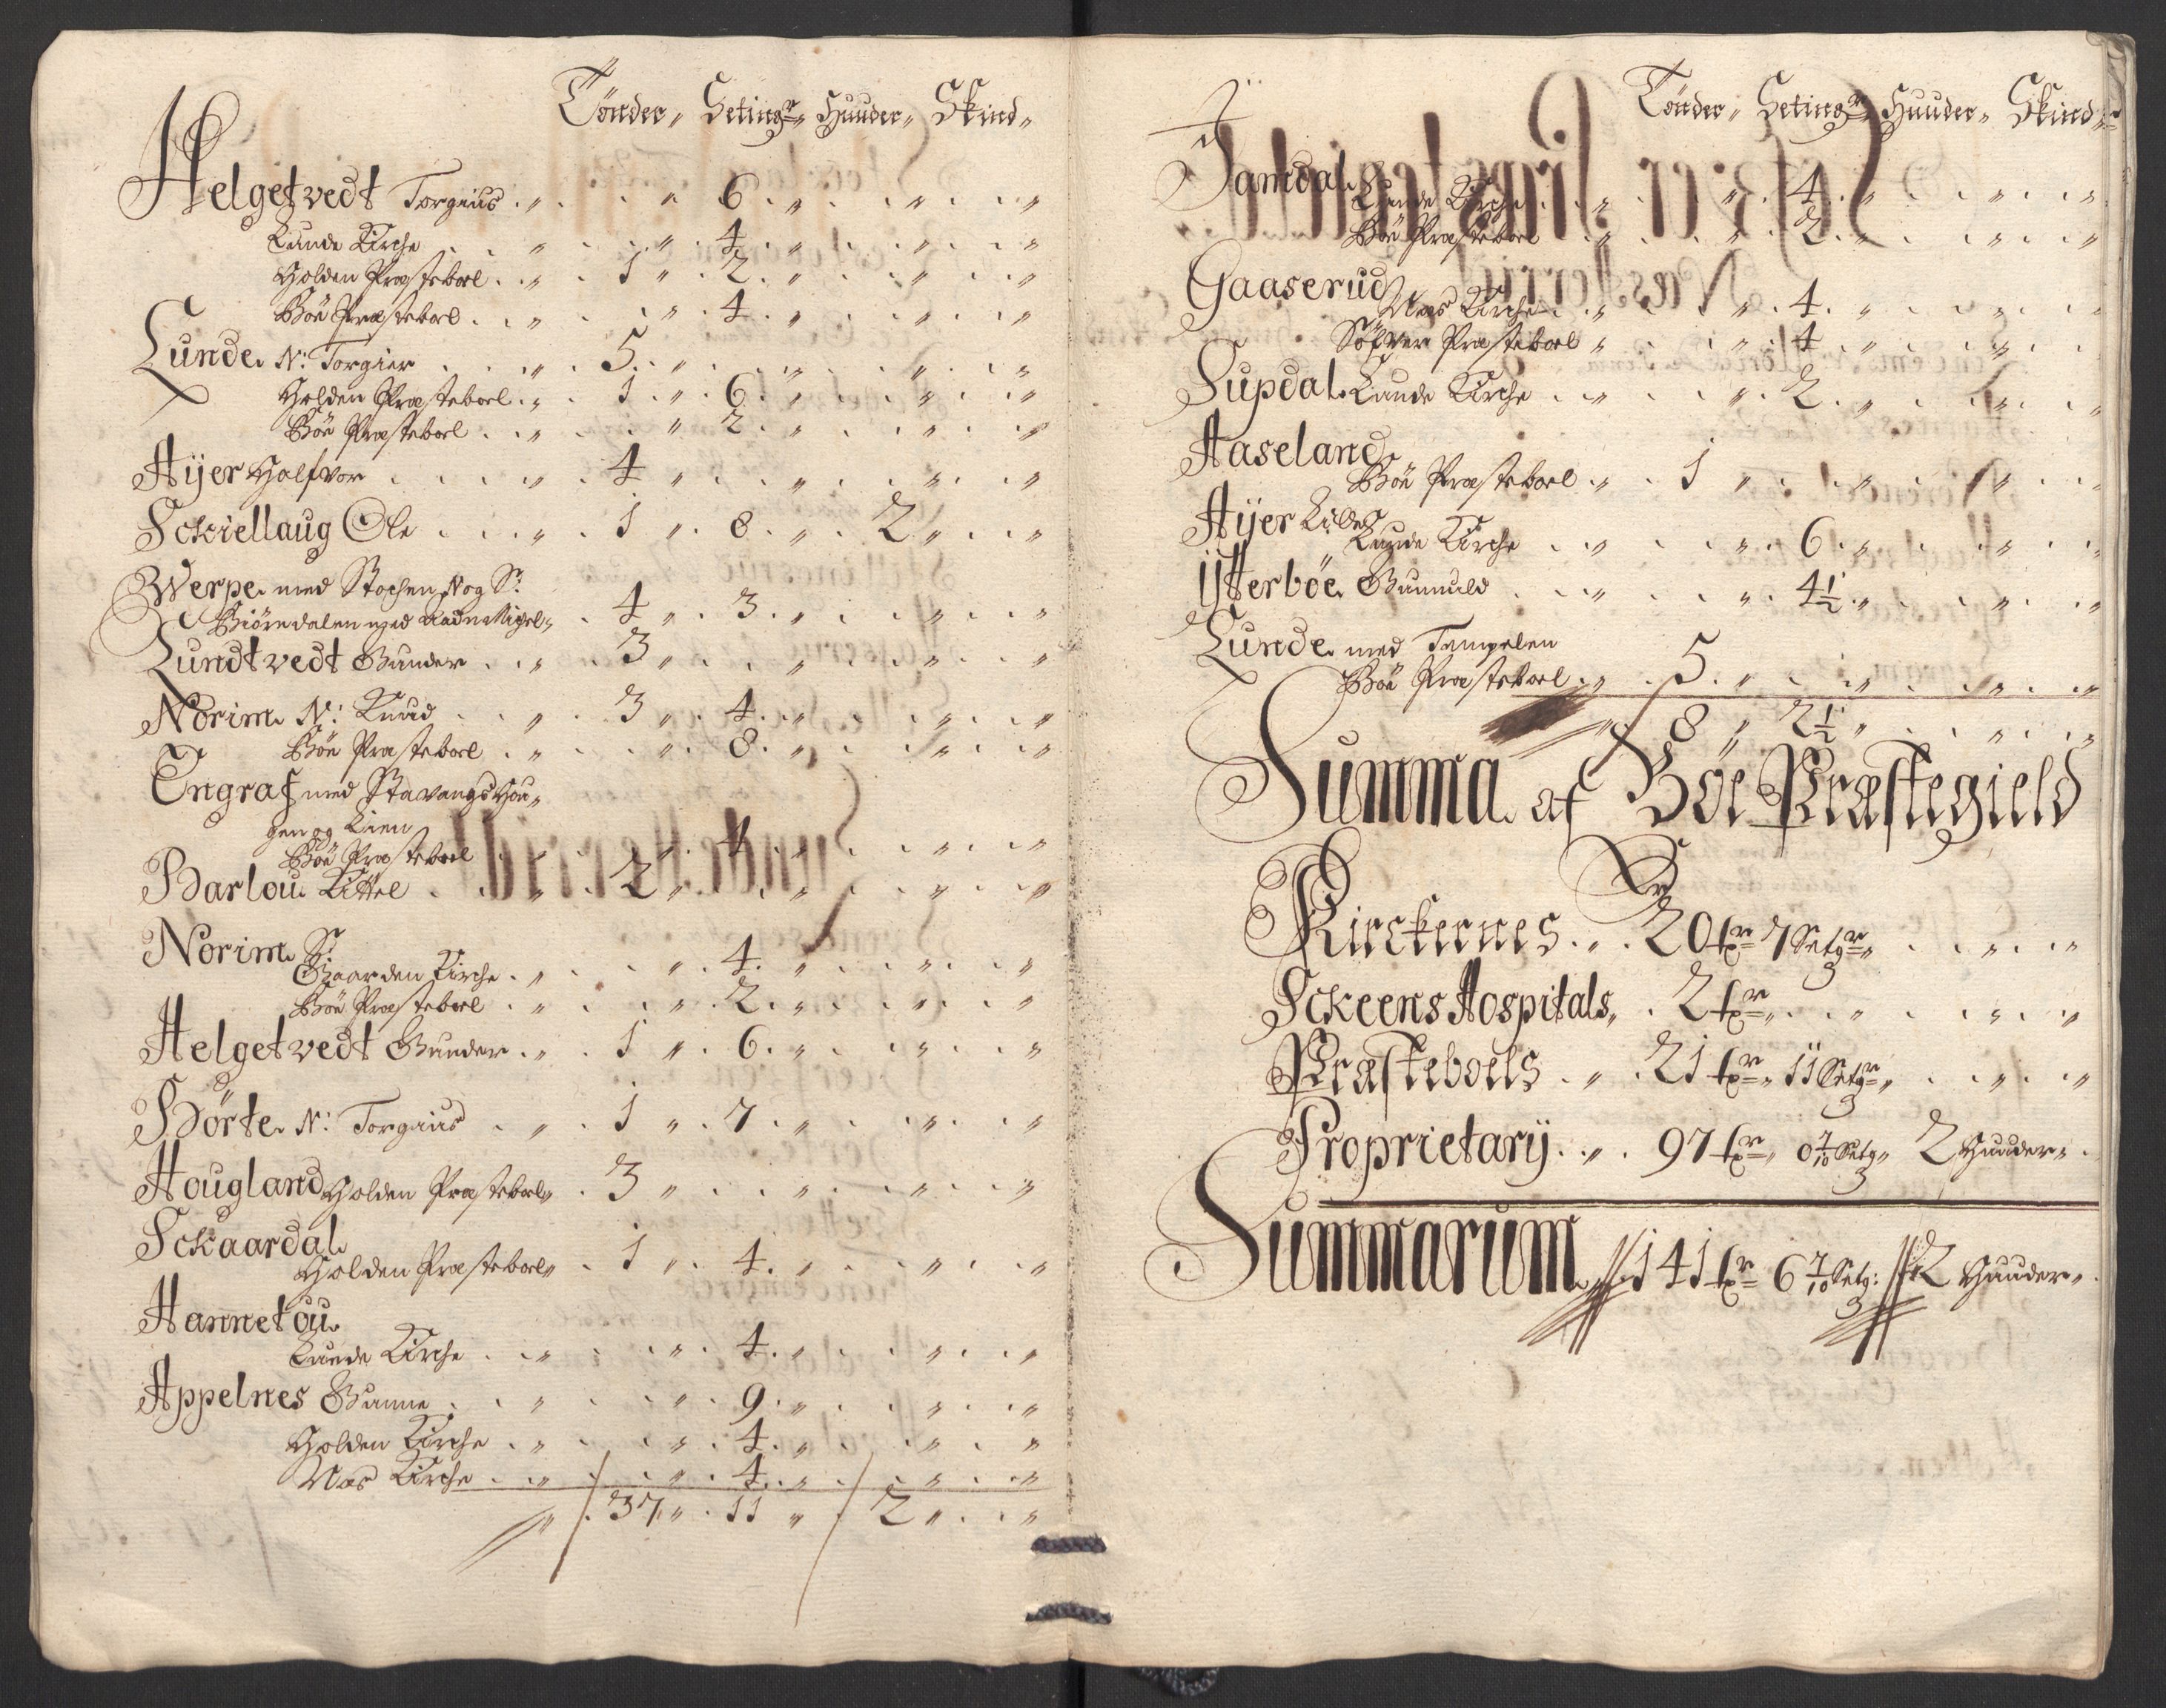 Tönder, Setingr, Huuder, Skind,
Helgetvedt Torgius . „ . . „ 6 . „ . . „ . . „
Lunde Kirche . . „ . . „ . 4 . „ . . „ . . „
Holden Præsteboel . „ . 1 „ . 2 . „ . . „ . . „
Böe Præsteboel . „ . . „ . 4 . „ . . „ . . „
Lunde N: Torgier . . „ . 5 . „ . . „ . . „ . . „
Holden Præsteboel . „ . 1 „ . 6 . „ . . „ . . „
Böe Præsteboel . „ . . „ 2 . „ . . „ . . „
Aÿer Halfvor . . . „ . 4 „ . . „ . . „ . . „
Sckiellaug Ole . . . „ . 1 „ . 8 . „ . 2 „ . . „
Werpe med Stochen N og S:
Biörndalen med 4 „ . 3 . „ . . „ . . „
Lundtvedt Gunder . . „ . 3 „ . . „ . . „ . . „
Norim N: Knud . . „ . 3 „ . 4 . „ . . „ . . „
Böe Præsteboel . „ . . „ . 8 . „ . . „ . . „
Engraf med Stavangs Hou„
gen og Lien
Böe Præsteboel . . „ 4 . „ . . „ . . „
Barlou Kittel . . „ . 2 „ . . „ . . „ . . „
Norim S:
Gaarden Kirche . „ . . „ . 4 . „ . . „ . . „
Böe Præsteboel . „ . . „ . 2 . „ . . „ . . „
Helgetvedt Gunder . „ . 1 „ . 6 . „ . . „ . . „
Börte N: Torgiuus . „ . 1 „ . 7 . „ . . „ . . „
Hougland Holden Præsteboel„ . 3 „ . . „ . . „ . . „
Sckaardal
Holden Præsteboel„ . 1 „ . 4 . „ . . „ . . „
Hannetou
Lunde Kirche . „ . . „ . 4 . „ . . „ . . „
Appelnes Gunne . . „ . . „ 9 . „ . . „ . . „
Holden Kirche . „ . . „ . 4 . „ . . „ . . „
Næs Kirche . „ . . „ . 4 . „ . . „ . . „
„ . 37 „ . 11 „ . 2 „ . . „
Tönder, Setingr, Huuder, Skind
Jamdal
Lunde Kirche . . „ 4 . „ . . „ . . „
Böe Præsteboel . „ . . „ 2 . „ . . „ . . „
Gaaserud
Næs Kirche . „ . . „ . 4 . „ . . „ . .
Præsteboel „ . . „ . 4 . „ . . „ . .
Supdal Lunde Kirche . „ . . „ . 2 . „ . . „ . . „
Aaseland
Böe Præsteboel . „ . 1 „ . . „ . . „ . .
Aÿer Lille
Lunde Kirche . „ . . „ . 6 . „ . . „ . . „
Ytterböe Gunnuld . . „ . . „ . 4½ . „ . . „ . . „
Lunde med Tempelen
Böe Præsteboel . „ . 5 . „ . . „ . . „ . . „
„ 8 „ 2½ „ . . „ . . „
Summa af Böe Præstegield
Kirckernes . „ . 20 tr 7 Setgr „ . . „ . . „
Sckeens Hospitals, . 2 tr „ . . „ . . „ . . „
Præsteboels . „ . 21 tr „ 11 Setgr „ . . „ . . „
Proprietarÿ . „ . 97 tr „ 0 7/10 Setg „ 2 Huuder „ .
Summarum 141 tr 6 7/10 Setg: 2 Huuder „ .